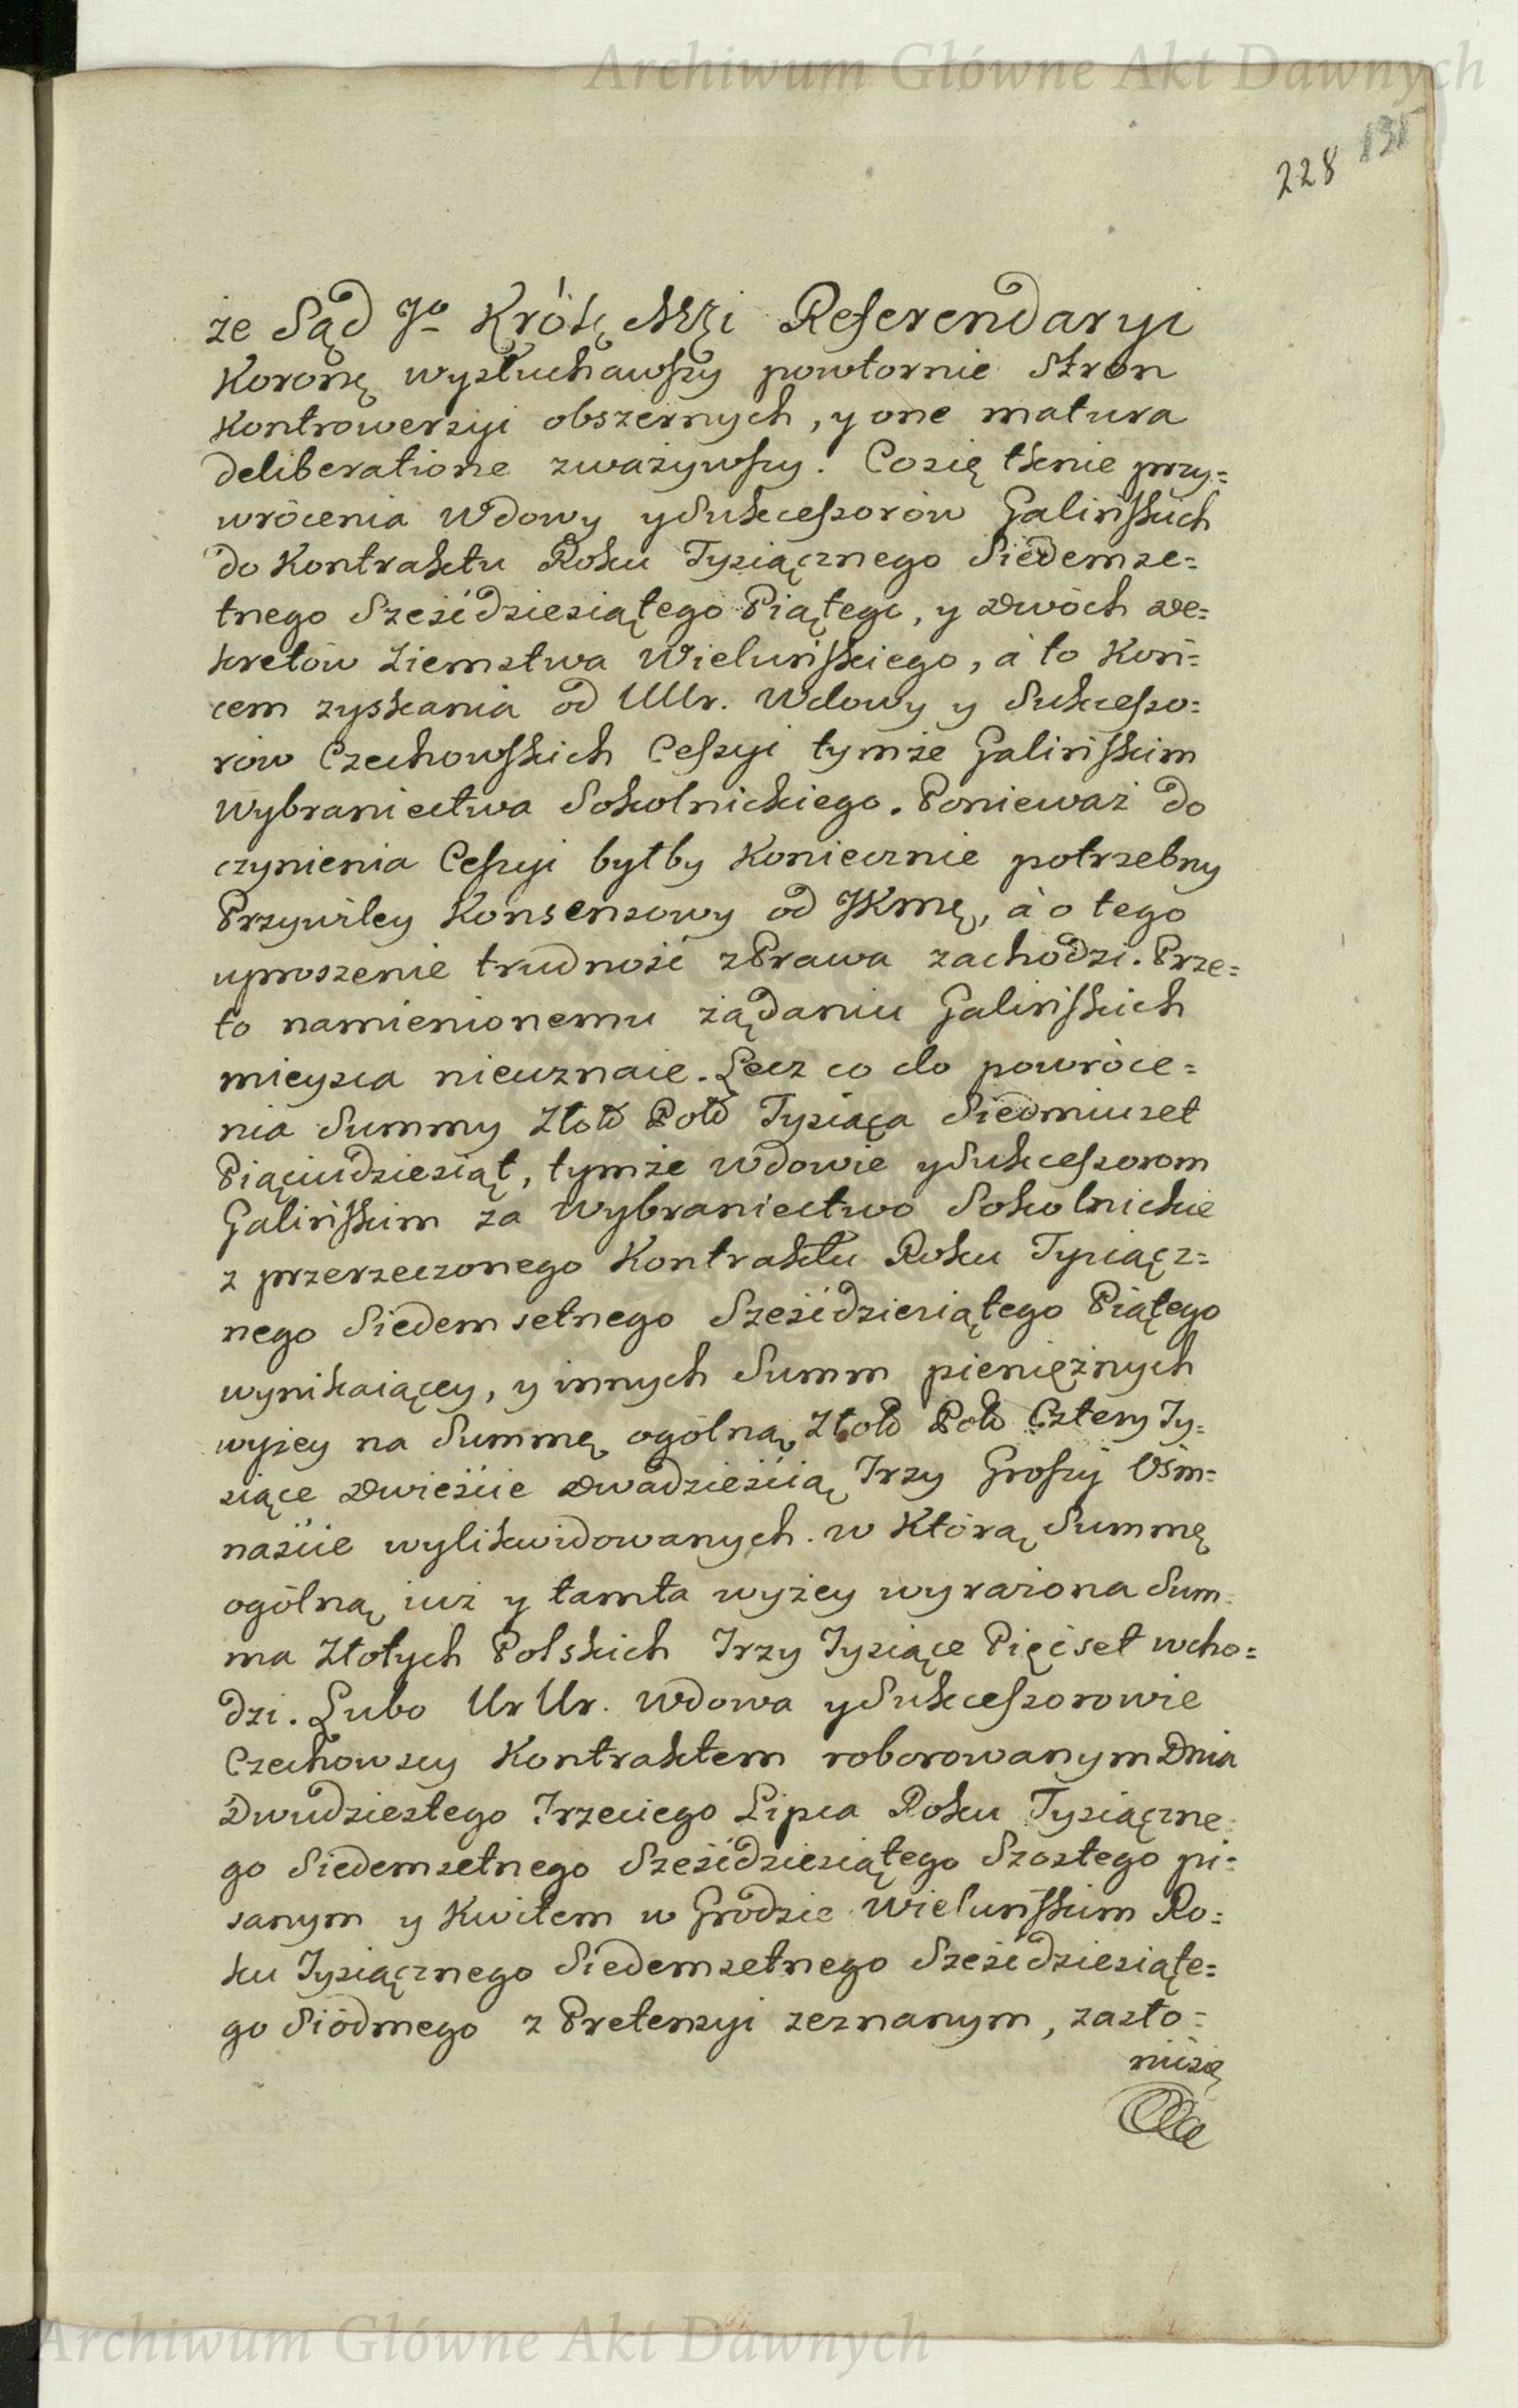 Archiwum Główne Akt Dawnych
228 131
że Sąd Jo Królę Mźi Referendaryi
Koronę wysłuchawszy powtornie Stron
Kontrowersyi obszernych, y one matura
deliberatione zważywszy. Co się tknie przy=
wrócenia Wdowy y Sukcessorów Galińskich
do Kontraktu Roku Tysiącznego Siedemse=
tnego Sześćdziesiątego Piątego, y dwóch de=
kretów Ziemstwa Wieluńskiego, à to Koń=
cem zyskania od UUr. Wdowy y Sukcesso=
rów Czechowskich Cessyi tymże Galińskim
Wybraniectwa Sokolnickiego. Ponieważ do
czynienia Cessyi byłby Koniecznie potrzebny
Przywiley Konsensowy od JKmę, à o tego
uproszenie trudność z Prawa zachodzi. Prze=
to namienionemu żądaniu Galińskich
mieysca nieuznaie. Lecz co do powróce=
nia Summy Złotd Pold Tysiąca Siedmiuset
Piąciudziesiąt, tymże Wdowie y Sukcessorom
Galińskim za Wybraniectwo Sokolnickie
z przerzeczonego Kontraktu Roku Tysiącz=
nego Siedemsetnego Sześćdziesiątego Piątego
wynikaiącey, y innych Summ pieniężnych
wyżey na Summę ogólną Złotd Pold Cztery Ty=
siące dwieście dwadzieścią Trzy Groszy Ośm=
naście wylikwidowanych. w Którą Summę
ogólną iuż y tamta wyżey wyrażona Sum=
ma Złotych Polskich Trzy Tysiące Pięćset wcho=
dzi. Lubo Ur Ur. Wdowa y Sukcessorowie
Czechowscy Kontraktem roborowanym Dnia
Dwudziestego Trzeciego Lipca Roku Tysiączne=
go Siedemsetnego Sześćdziesiątego Szostego pi=
sanym y Kwitem w Grodzie Wieluńskim Ro=
ku Tysiącznego Siedemsetnego Sześćdziesiąte=
go Siódmego z Pretensyi zeznanym, zasło=
nisię
Archiwum Główne Akt Dawnych